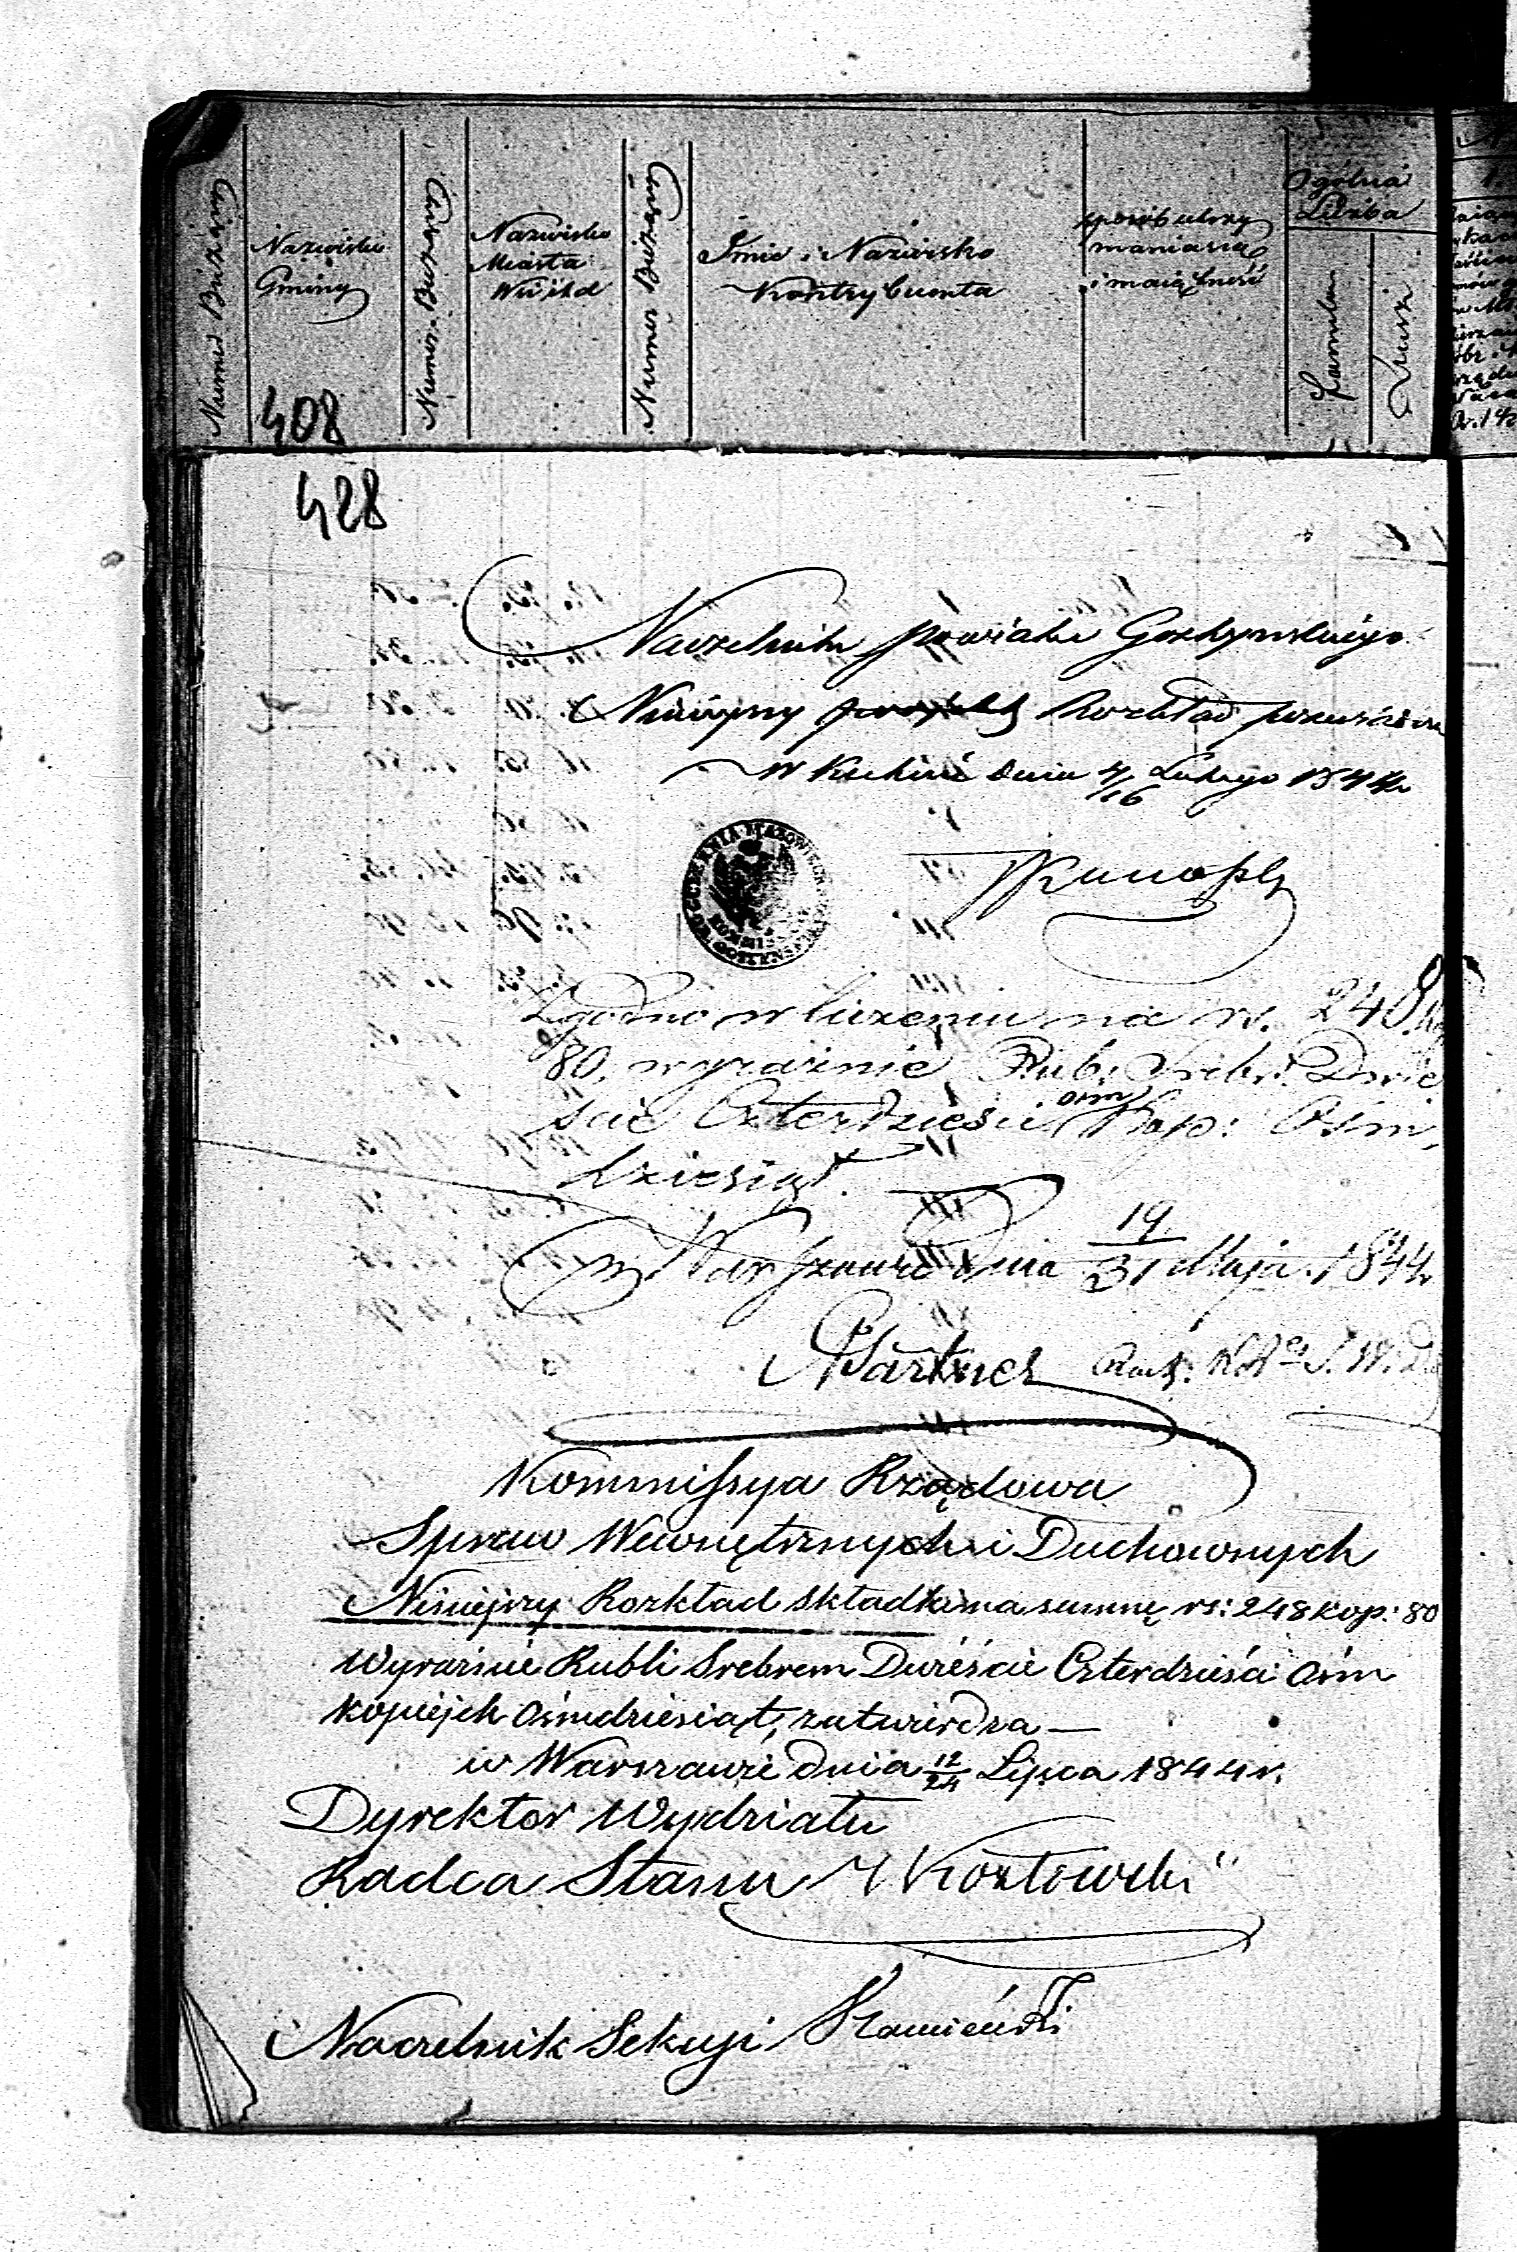 Numer Bieżący
Nazwisko
Gminy
Numer Bieżący
Nazwisko
Miasta
Wsi itd
Numer Bieżący
Imie i Nazwisko
Kontrybuenta
sposób utrzy
mania się
i maiętność
Ogólna
Liczba
Familii
Dusz
408
428
Naczelnik Powiatu Gostyńskiego
Niniejszy Rozkład
w Kutnie dnia 4/16 Lutego 1844
Zgodno w liczeniu na rs. 248
80, wyraźnie Rub: Srebr: Dwie
ście Czterdzieści ośm Kop: Ośm
dziesiąt.
w Warszawie dnia 19/31 Maja 1844
Kommissya Rządowa
Spraw Wewnętrznych i Duchownych
Niniejszy Rozkład składki na summę rs: 248 kop: 80
Wyraźnie Rubli Srebrem Dwieście Czterdzieści ośm
kopiejek ośmdziesiąt, zatwierdza —
w Warszawie dnia 12/24 Lipca 1844 r.
Dyrektor Wydziału
Radca Stanu Kozłowski
Naczelnik Sekcyi Kamieński